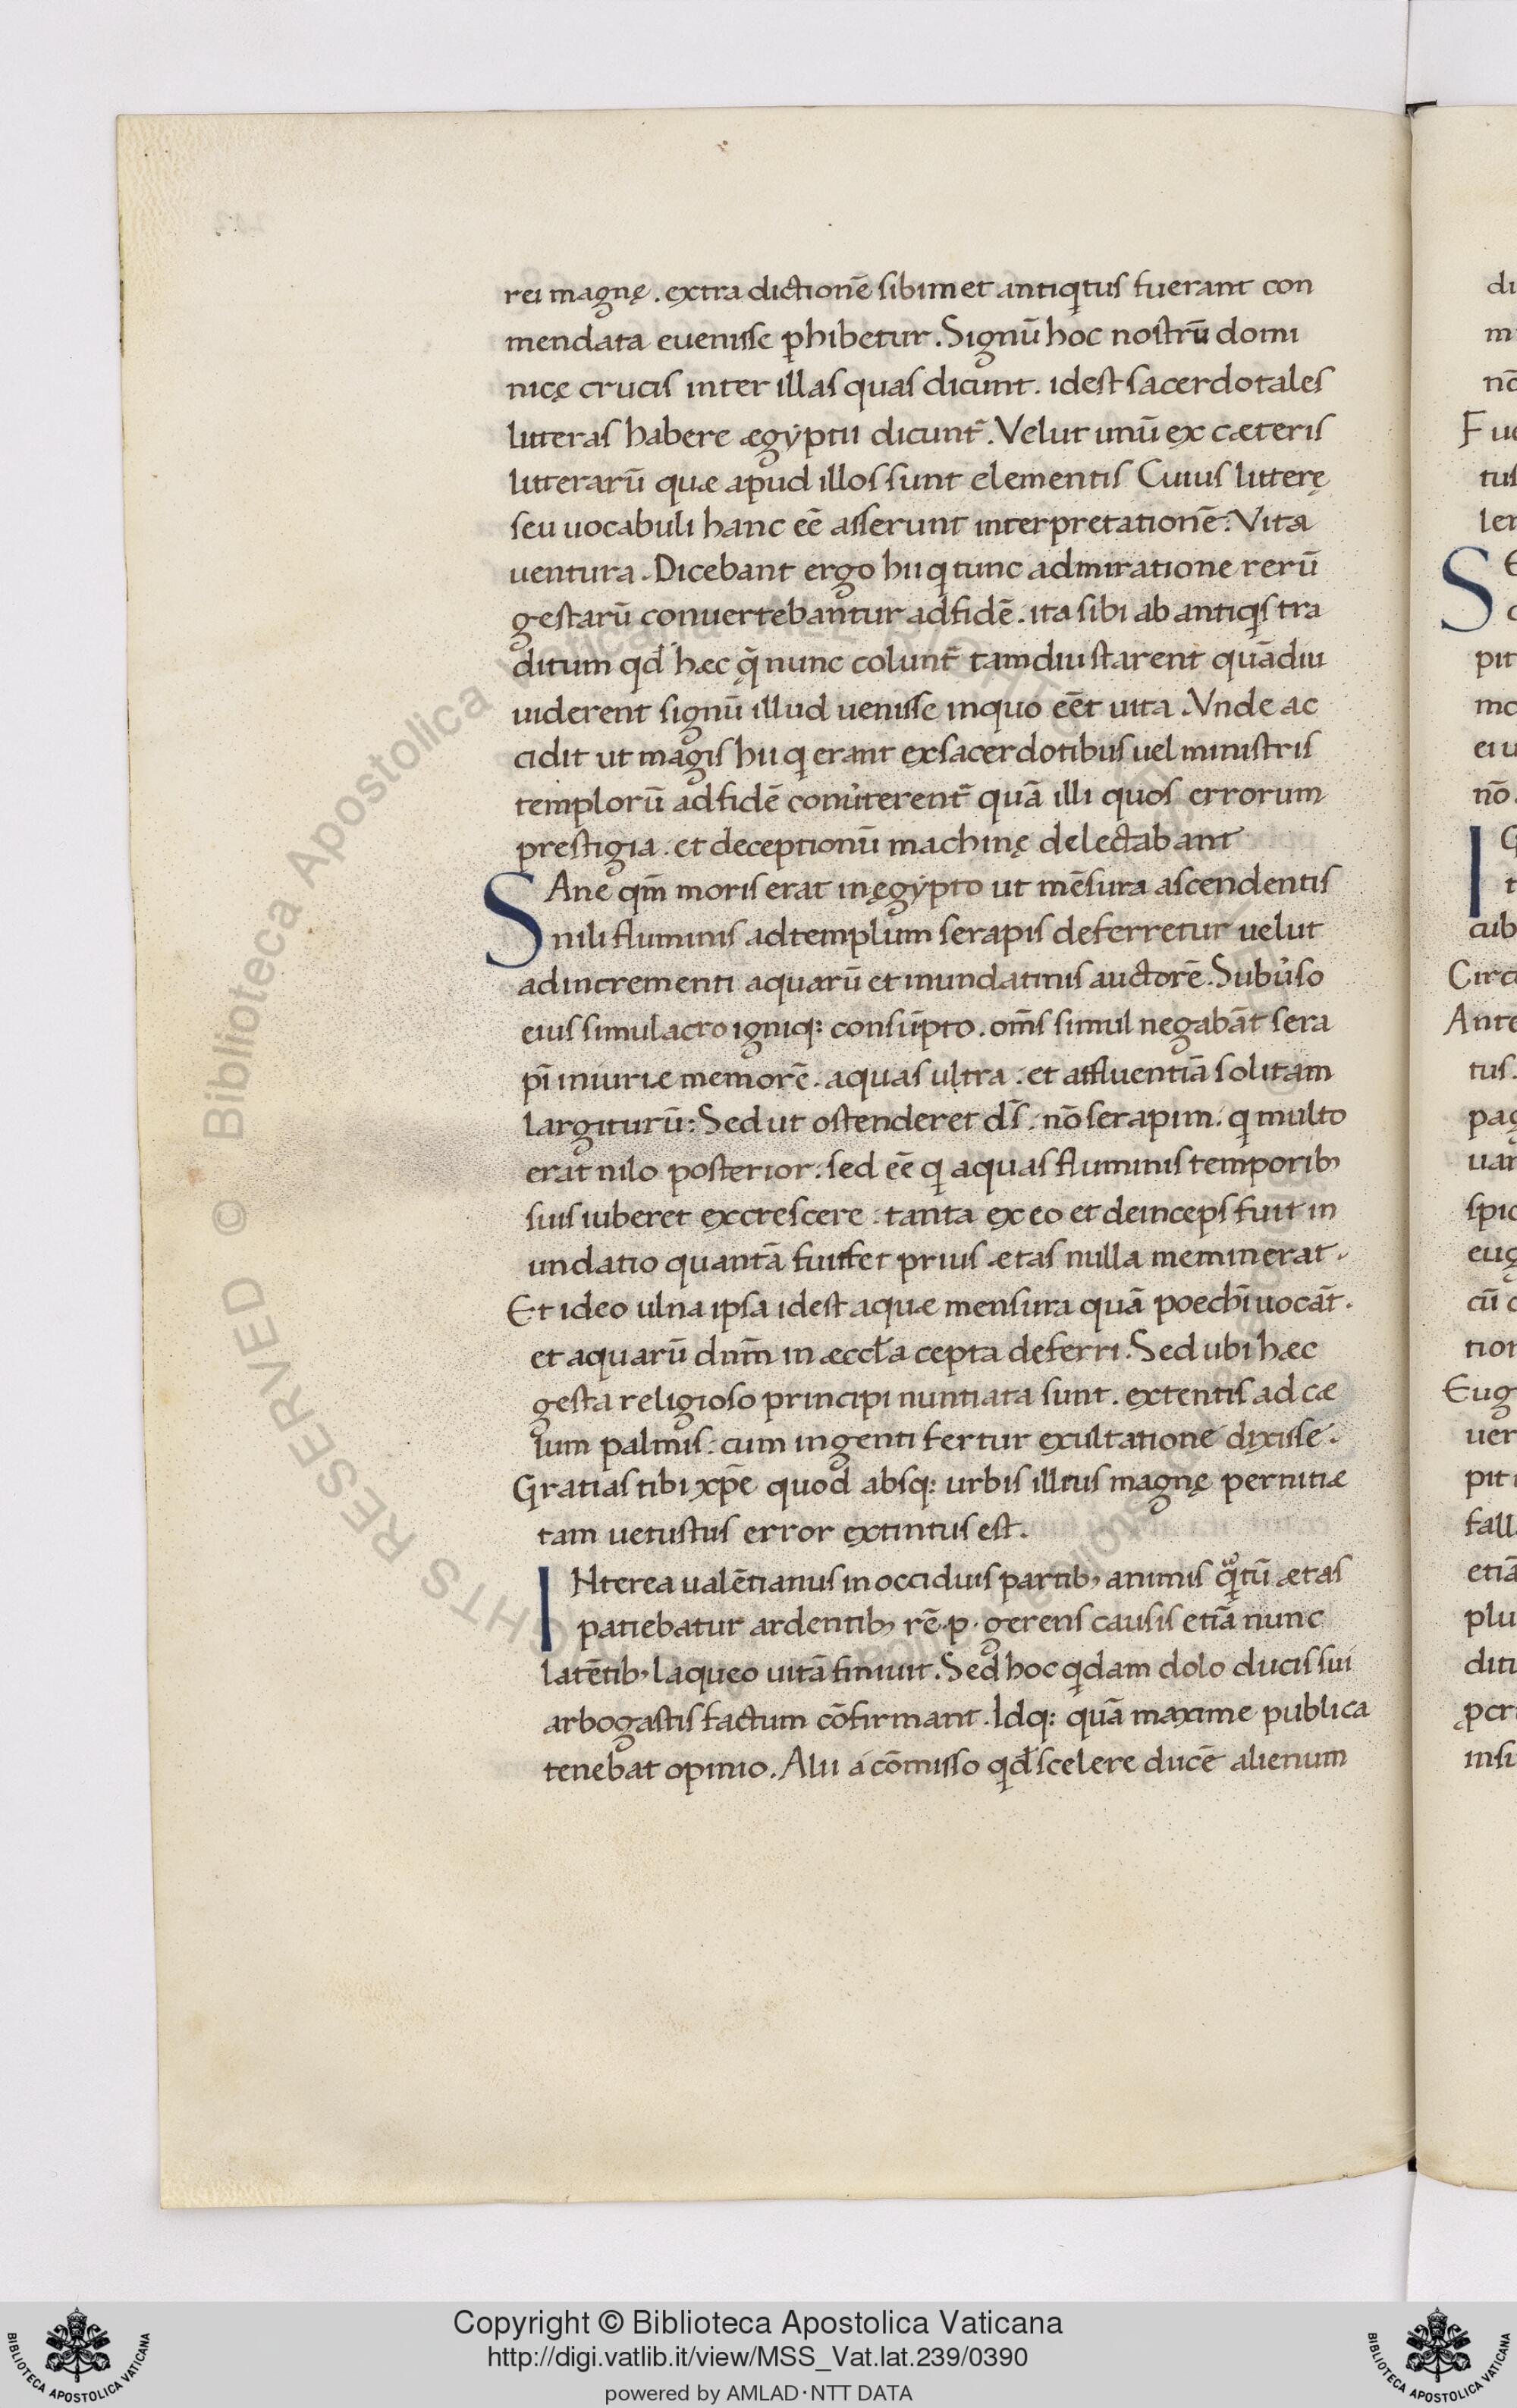 rei magnę . extra dictionē sibimet antiq̇tus fuerant con
mendata euenisse ꝓhibetur . Signū hoc nostrū domi
nicę crucis inter illas quas dicunt . idest sacerdotales
litteras habere ægẏptii dicunt᷑ . Velut unū ex cæteris
litterarū quæ apud illos sunt elementis Cuius litterę
seu uocabuli hanc eē asserunt interpretationē : Vita
uentura . Dicebant ergo hii qi tunc admiratione rerū
gestarū conuertebantur adfidē . ita sibi ab antiqis tra
ditum qd̄ hæc q̨̄ nunc colunt᷑ tamdiu starent quādiu
uiderent signū illud uenisse inquo eēt uita . Vnde ac
cidit ut magis hii qi erant exsacerdotibus uel ministris
templorū adfidē conu̓terent᷑ quā illi quos errorum
prestigia . et deceptionū machinę delectabant
SAne qm̄ moris erat inęgẏpto ut mēsura ascendentis
nili fluminis adtemplum serapis deferretur uelut
adincrementi aquarū et inundatinis auctorē . Subu̓so
eius simulacro igniq; consūpto . om̄s simul negabāt sera
pī iniuriæ memorē . aquas ultra . et affluentiā solitam
largiturū : Sed ut ostenderet d̄s . nō serapim . qi multo
erat nilo posterior . sed eē qi aquas fluminis temporib;
suis iuberet excrescere . tanta ex eo et deinceps fuit in
undatio quantā fuisset prius ætas nulla meminerat .
Et ideo ulna ipsa idest aquæ mensura quā poechī uocāt .
et aquarū dnm̄ in æccl̄a cepta deferri . Sed ubi hæc
gesta religioso principi nuntiata sunt . extentis ad cæ
lum palmis . cum ingenti fertur exultatione dixisse .
Gratias tibi xp̄e quod absq; urbis illius magnę pernitiæ
tam uetustus error extintus est .
INterea ualētianus in occiduis partib; animis qͦi̇tū ætas
patiebatur ardentib; rē . p . gerens causis etiā nunc
latētib; laqueo uitā finiuit . Sed hoc qidam dolo ducis sui
arbogastis factum cōfirmant . Idq; quā maxime publica
tenebat opinio . Alii a cōmisso qidē scelere ducē alienum
di
m
nō
Fu
tus
ler
S
pit
mo
ei u
nō .
I
cub
Circ
Ante
tus .
pag
uar
spic
eug
cū c
tion
Eug
uer
pit
fall
etiā
plu
diti
ꝑcr
insi
Copyright © Biblioteca Apostolica Vaticana
http://digi.vatlib.it/view/MSS_Vat.lat.239/0390
powered by AMLAD·NTT DATA
BIBLIOTECA APOSTOLICA VATICANA
BIBLIOTECA APOSTOLICA VATICANA
© Biblioteca Apostolica Vaticana ALL RIGHTS RESERVED